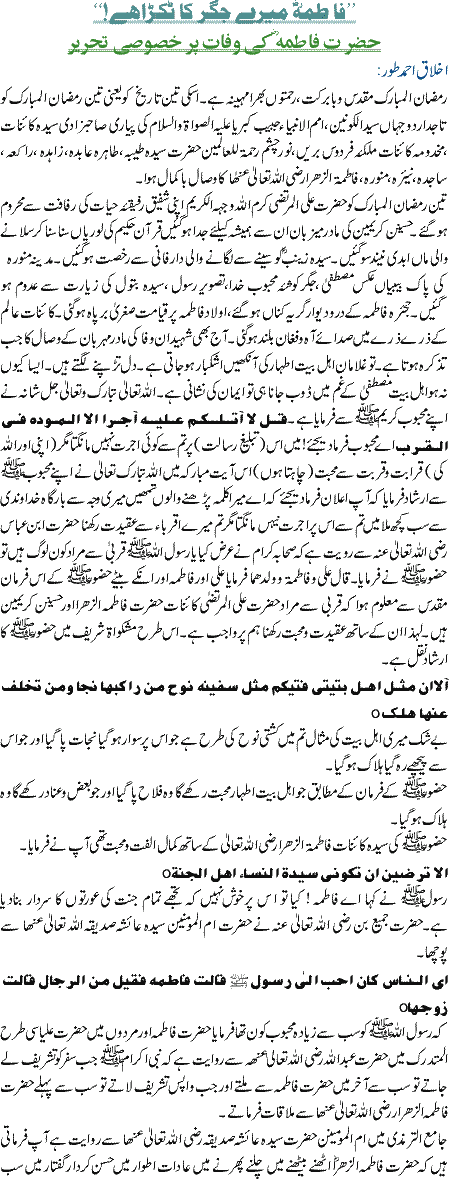 ”فاطمہؓ میرے جگر کا ٹکڑاھے!“
حضرت فاطمہؓ کی وفات پر خصوصی تحریر
اخلاق احمد طور:
رمضان المبارک مقدس و بابرکت، رحمتوں بھرا مہینہ ہے۔ اسکی تین تاریخ کو یعنی تین رمضان المبارک کو
تاجدار دو جہاں سید الکونین، امم الانبیاء حبیب کبریا علیہ الصواۃ والسلام کی پیاری صاحبزادی سیدہ کائنات
،مخدومہ کائنات ملکہ فردوس بریں، نور چشم رحمۃ للعالمین حضرت سیدہ طیبہ، طاہرہ عابدہ، زاہدہ، راکعہ،
ساجدہ، نیئرہ، منورہ، فاطمۃ الزھرا رضی اللہ تعالیٰ عنھا کا وصال باکمال ہوا۔
تین رمضان المبارک کو حضرت علی المرتضی کرم اللہ وجہہ الکریم اپنی شفیق رفیقہ حیات کی رفاقت سے محروم
ہو گئے۔ حسنین کریمین کی مادر مہربان ان سے ہمیشہ کیلئے جدا ہو گئیں قرآن حکیم کی لوریاں سنا سنا کر سلانے
والی ماں ابدی نیند سو گئیں۔ سیدہ زینبؓ کو سینے سے لگانے والی دار فانی سے رخصت ہو گئیں۔ مدینہ منورہ
کی پاک بیبیاں عکس مصطفیٰ، جگر گوشہ محبوب خدا، تصویر رسول، سیدہ بتول کی زیارت سے محروم ہو
گئیں۔ حجرہ فاطمہ کے در و دیوار گریہ کناں ہو گئے، اولاد فاطمہ پر قیامت صغریٰ برپا ہو گئی۔ کائنات عالم
کے ذرے ذرے میں صدائے آہ و فغاں بلند ہو گئی۔ آج بھی شہیدان وفا کی مادر مہربان کے وصال کا جب
تذکرہ ہوتا ہے۔ تو غلامان اہل بیت اطہار کی آنکھیں اشکبار ہو جاتی ہے۔ دل تڑپنے لگتے ہیں۔ ایسا کیوں
نہ ہو اہل بیت مصطفیٰ کے غم میں ڈوب جانا ہی تو ایمان کی نشانی ہے۔ اللہ تعالیٰ تبارک و تعالیٰ جل شانہ نے
اپنے محبوب کریم ﷺ سے فرمایا ہے۔ قل لا آتلکم علیہ آجرا الا المودہ فی
القرب اے محبوب فرما دیجئے! میں اس (تبلیغ رسالت) پر تم سے کوئی اجرت نہیں مانگتا مگر (اپنی اور اللہ
کی) قرابت و قربت سے محبت (چاہتا ہوں) اس آیت مبارکہ میں اللہ تبارک تعالیٰ نے اپنے محبوب ﷺ
سے ارشاد فرمایا کہ آپ اعلان فرما دیجئے کہ اے میرا کلمہ پڑھنے والوں تمھیں میری وجہ سے بارگاہ خداوندی
سے سب کچھ ملا میں تم سے اس پر اجرت نہیں مانگتا مگر تم میرے اقرباء سے عقیدت رکھنا حضرت ابن عباس
رضی اللہ تعالیٰ عنہ سے روایت ہے کہ صحابہ کرام نے عرض کیا یا رسول اللہ ﷺ قربیٰ سے مراد کون لوگ ہیں تو
حضور ﷺ نے فرمایا۔ قال علی و فاطمۃ و ولدھا فرمایا علی اور فاطمہ اور انکے بیٹے حضور ﷺ کے اس فرمان
مقدس سے معلوم ہوا کہ قربیٰ سے مراد حضرت علی المرتضیٰ کائنات حضرت فاطمۃ الزھرا اور حسنین کریمین
ہیں۔ لہذا ان کے ساتھ عقیدت و محبت رکھنا ہم پر واجب ہے۔ اس طرح مشکواۃ شریف میں حضور ﷺ کا
ارشاد نقل ہے۔
آلاان مثل اھل بتیتی فتیکم مثل سفینہ نوح من راکبھا نجا ومن تخلف
عنھا ھلک o
بے شک میری اہل بیت کی مثال تم میں کشتی نوح کی طرح ہے جو اس پر سوار ہو گیا نجات پا گیا اور جو اس
سے پیچھے رہ گیا ہلاک ہو گیا۔
حضور ﷺ کے فرمان کے مطابق جو اہل بیت اطہار محبت رکھے گا وہ فلاح پا گیا اور جو بغض و عناد رکھے گا وہ
ہلاک ہو گیا۔
حضور ﷺ کی سیدہ کائنات فاطمۃ الزھرا رضی اللہ تعالیٰ کے ساتھ کمال الفت و محبت تھی آپ نے فرمایا۔
الا ترضین ان تکونی سیدۃ النساء اھل الجنۃ o
رسول ﷺ نے کہا اے فاطمہ! کیا تو اس پر خوش نہیں کہ تجھے تمام جنت کی عورتوں کا سردار بنا دیا
ہے۔ حضرت جمیع بن رضی اللہ تعالیٰ عنہ نے حضرت ام المومنین سیدہ عائشہ صدیقہ رضی اللہ تعالیٰ عنھا سے
پوچھا۔
ای الناس کان احب الیٰ رسول ﷺ قالت فاطمہ فقیل من الرجال قالت
زوجھا o
کہ رسول اللہ ﷺ کو سب سے زیادہ محبوب کون تھا فرمایا حضرت فاطمہ اور مردوں میں حضرت علیا سی طرح
المتدرک میں حضرت عبداللہ رضی اللہ تعالیٰ عنھہ سے روایت ہے کہ نبی اکرام ﷺ جب سفر کو تشریف لے
جاتے تو سب سے آخر میں حضرت فاطمہ سے ملتے اور جب واپس تشریف لاتے تو سب سے پہلے حضرت
فاطمۃ الزھرا رضی اللہ تعالیٰ عنھا سے ملاقات فرماتے۔
جامع الترمذی میں ام المومنین حضرت سیدہ عائشہ صدیقہ رضی اللہ تعالیٰ عنھا سے روایت ہے آپ فرماتی
ہیں کہ حضرت فاطمۃ الزھراؓ اٹھنے بیٹھنے میں چلنے پھرنے میں عادات اطوار میں حسن کردار گفتار میں سب